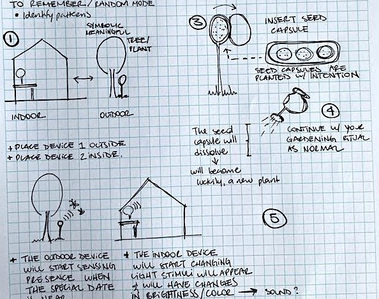 TO REMEMBER / RANDOM MODE
• Identify patterns
1
SYMBOLIC
MEANINGFUL
TREE/
PLANT
INDOOR
OUTDOOR
+ PLACE DEVICE 1 OUTSIDE.
+ PLACE DEVICE 2 INSIDE.
3
INSERT SEED
CAPSULE
SEED CAPSULES ARE
PLANTED WITH INTENTION
4
The seed
capsule will
dissolve
will become
luckily, a new plant
CONTINUE W/ YOUR
GARDENING RITUAL
AS NORMAL
5
* THE OUTDOOR DEVICE
WILL START SENSING
PRESENCE WHEN
THE SPECIAL DATE
IS NEAR
* THE INDOOR DEVICE
WILL START CHANGING
LIGHT STIMULI WILL APPEAR
& WILL HAVE CHANGES
IN BRIGHTNESS/COLOR → SOUND?